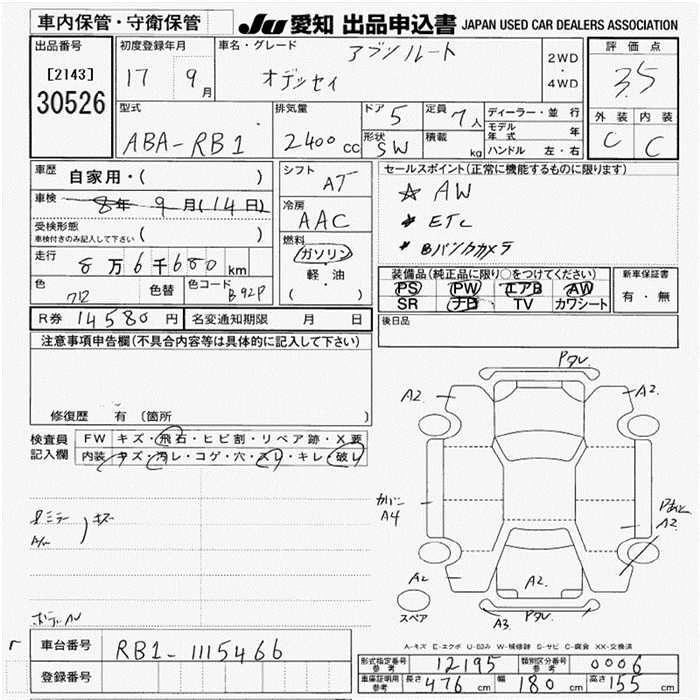 車内保管・守衛保管 JU 愛知 出品申込書 JAPAN USED CAR DEALERS ASSOCIATION
出品番号 [2143] 30526
初度登録年月 17 9月
車名・グレード アブソルート オデッセイ
2WD・4WD
評価点 3.5
外装 C 内装 C
型式 ABA-RB1
排気量 2400cc
ドア 5
形状 SW
定員 7人
積載 kg
ディーラー・並行
モデル年式 年
ハンドル 左・右
車歴 自家用・( )
車検 8年 9月(14日)
受検形態 車検付きのみ記入して下さい ( )
走行 8万6千680km
色 色替 色コード B92P
シフト AT
冷房 AAC
燃料 ガソリン
軽・油
( )
セールスポイント(正常に機能するものに限ります)
☆ AW
* ETC
* Bバンクカメラ
装備品(純正品に限り○をつけてください)
PS PW エアB AW
SR ナビ TV カワシート
新車保証書 有・無
後日品
R券 14580円 名変通知期限 月 日
注意事項申告欄(不具合内容等は具体的に記入して下さい)
修復歴 有 (箇所 )
検査員記入欄
FW キズ・飛石・ヒビ割・リペア跡・X要
内装 キズ・汚レ・コゲ・穴・スレ・キレ・破レ
キズ
A2
A2
A4
A2
A2
A2
A3
スペア
A-キズ E-エクボ U-凹み W-補修跡 S-サビ C-腐食 XX-交換済
車台番号 RB1-1115466
登録番号
形式指定番号 参考 12195
類別区分番号 参考 0006
車庫証明用 参考 長さ 476cm 幅 180cm 高さ 155cm